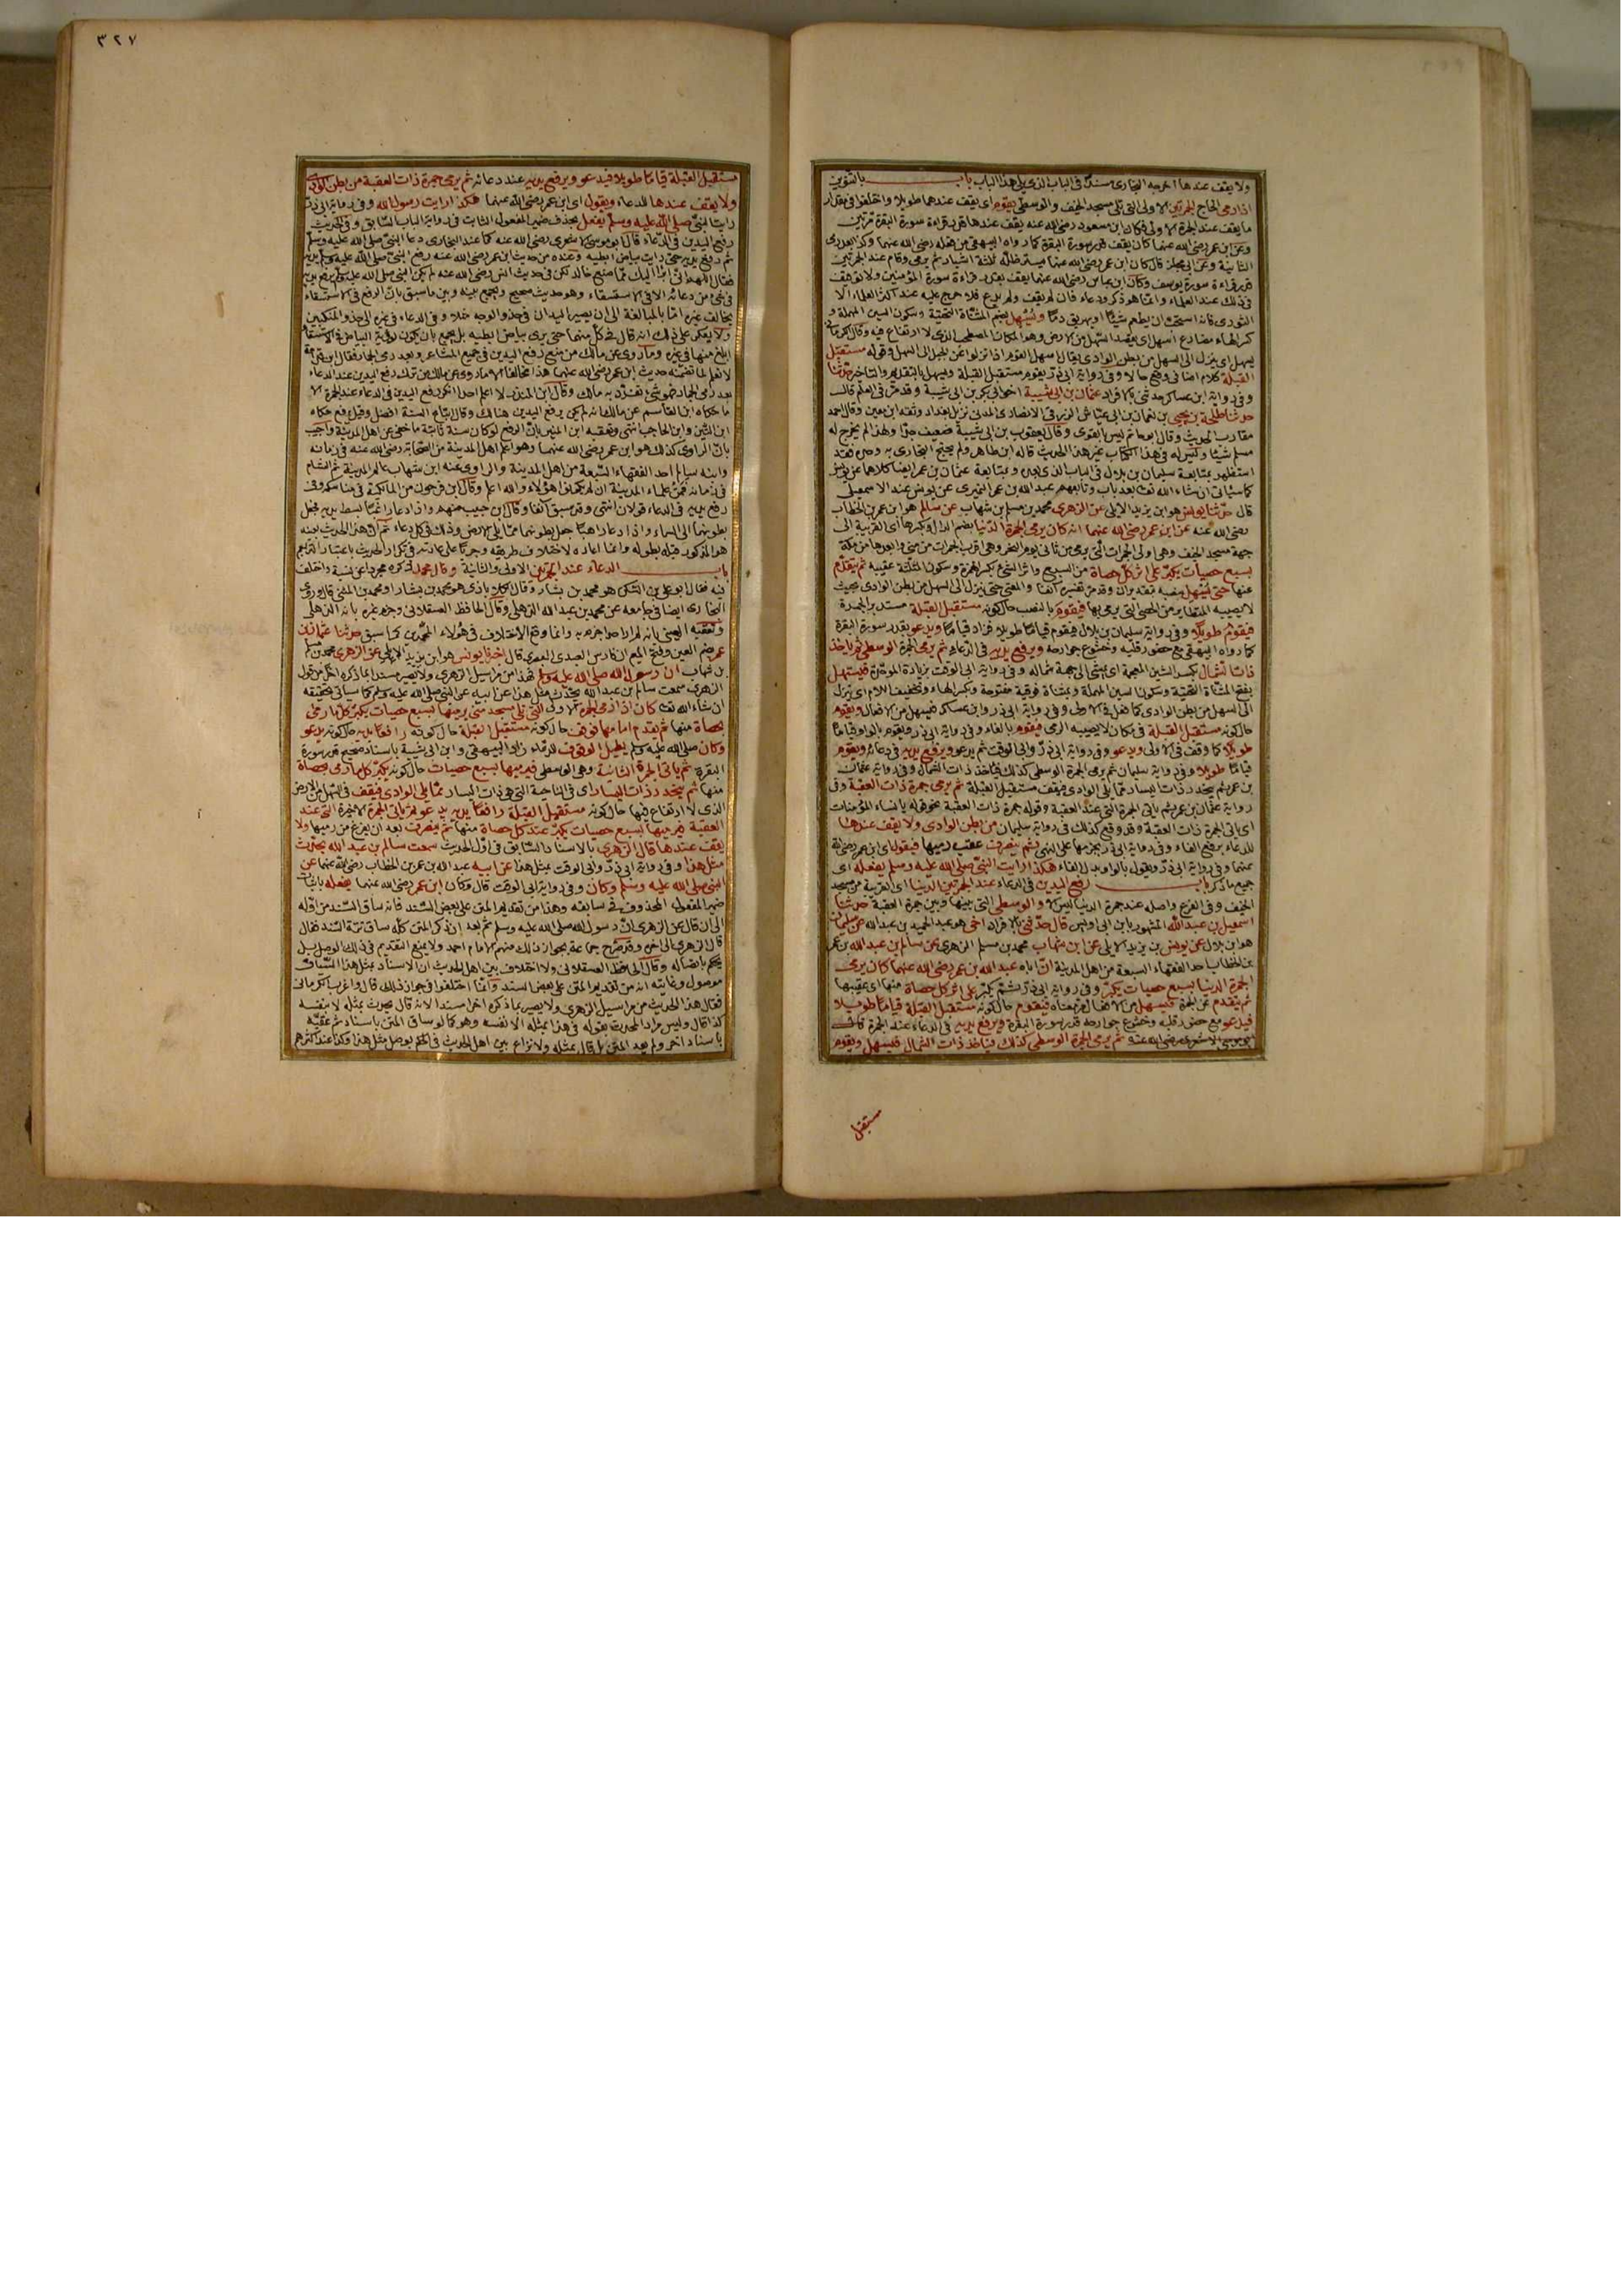 ولا يقف عندها اخرجه البخارى مسندا فى الباب الذى يلى هذا الباب باب بالتنوين
اذا رمى الحاج الجمرتين الاولى التى تلى مسجد الخيف والوسطى يقوم اى يقف عندهما طويلا واختلفوا فى مقدار
ما يقف عند الجمرة الاولى فكان ابن مسعود رضى الله عنه يقف عندها قدر قراءة سورة البقرة مرتين
وعن ابن عمر رضى الله عنهما كان يقف قدر سورة البقرة كما رواه البيهقى من فعله رضى الله عنهما وكذا بعد رمى
الثانية وعن ابى مجلز قال كان ابن عمر رضى الله عنهما يستر ظله ثلثة اشبار ثم يرمى وقام عند الجمرتين
قدر قراءة سورة يوسف وكان ابن عباس رضى الله عنهما يقف بقدر قراءة سورة المؤمنين ولا توقيف
فى ذلك عند العلماء وانما هو ذكر ودعاء فان لم يقف ولم يدع فلا حرج عليه عند اكثر العلماء الا
الثورى فانه استحب ان يطعم شيئا او يهريق دما ويسهل بضم المثناة التحتية وسكون السين المهملة و
كسر الهاء مضارع اسهل اى يقصد السهل من الارض وهو المكان المصطحب الذى لا ارتفاع فيه وقال الكرمانى
يسهل اى ينزل الى السهل من بطن الوادى يقال اسهل القوم اذا نزلوا عن الجبل الى السهل وقوله مستقبل
القبلة كلام اضافى وقع حالا وفى رواية ابى ذر يقوم مستقبل القبلة ويسهل بالتقديم والتاخير حدثنا
وفى رواية ابن عساكر حدثنى بالافراد عثمان بن ابى شيبة اخو ابى بكر بن ابى شيبة وقد مر فى العلم قالـ
حدثنا طلحة بن يحيى بن نعمان بن ابى عياش الزرقى الانصارى المدنى نزيل بغداد وثقه ابن معين وقال احمد
مقارب الحديث وقال ابو حاتم ليس بالقوى وقال يعقوب بن ابى شيبة ضعيف جدا ولهذا لم يخرج له
مسلم شيئا وليس له فى هذا الكتاب غير هذا الحديث قاله ابن طاهر ولم يحتج البخارى به وحده فقد
استظهر بمتابعة سليمان بن بلال فى الباب الذى يليه وبمتابعة عثمان بن عمر ايضا كلاهما عن يونس
كما سيأتى ان شاء الله تعـ بعد باب وتابعهم عبد الله بن عمر النميرى عن يونس عند الاسمعيلى
قال حدثنا يونس هو ابن يزيد الايلى عن الزهرى محمد بن مسلم بن شهاب عن سالم هو ابن عمر بن الخطاب
رضى الله عنه عن ابن عمر رضى الله عنهما انه كان يرمى الجمرة الدنيا بضم الدال وكسرها اى القريبة الى
جهة مسجد الخيف وهى اولى الجمرات التى يرمى من ثانى يوم النحر وهى اقرب الجمرات من منى وابعدها من مكة
بسبع حصيات يكبر على اثر كل حصاة من السبع واثر الشئ بكسر الهمزة وسكون المثلثة عقيبه ثم يتقدم
عنها حتى يسهل بنصبه بتقدير ان وقد مر تفسيره آنفا والمعنى حتى ينزل الى السهل من بطن الوادى بحيث
لا يصيبه المتطاير من الحصى التى يرمى بها فيقوم بالنصب حال كونه مستقبل القبلة مستدبر الجمرة
فيقوم طويلا وفى رواية سليمان بن بلال فيقوم قياما طويلا فزاد قياما ويدعو بقدر سورة البقرة
كما رواه البيهقى مع حضور قلبه وخشوع جوارحه ويرفع يديه فى الدعاء ثم يرمى الجمرة الوسطى ثم ياخذ
ذات الشمال بكسر الشين المعجمة اى يمشى الى جهة شماله وفى رواية ابى الوقت بزيادة الموحدة فيستهل
بفتح المثناة التحتية وسكون السين المهملة وبمثناة فوقية مفتوحة وبكسر الهاء وتخفيف اللام اى ينزل
الى السهل من بطن الوادى كما فعل فى الاولى وفى رواية ابى ذر وابن عساكر فيسهل من الافعال ويقوم
حال كونه مستقبل القبلة فى مكان لا يصيبه الرمى فيقوم بالفاء وفى رواية ابى ذر ويقوم بالواو قياما
طويلا كما وقف فى الاولى ويدعو وفى رواية ابى ذر وابى الوقت ثم يدعو ويرفع يديه فى دعائه ويقوم
قياما طويلا وفى رواية سليمان ثم يرمى الجمرة الوسطى كذلك فياخذ ذات الشمال وفى رواية عثمان
بن عمر ثم ينحدر ذات اليسار مما يلى الوادى فيقف مستقبل القبلة ثم يرمى جمرة ذات العقبة وفى
رواية عثمان بن عمر ثم ياتى الجمرة التى عند العقبة وقوله جمرة ذات العقبة نحو قوله يا نساء المؤمنات
اى ياتى الجمرة ذات العقبة وقد وقع كذلك فى رواية سليمان من بطن الوادى ولا يقف عندها
للدعاء برفع الفاء وفى رواية ابى ذر بجزمها على النهى ثم ينصرف عقب رميها فيقول اى ابن عمر رضى الله
عنهما وفى رواية ابى ذر ويقول بالواو بدل الفاء هكذا رايت النبى صلى الله عليه وسلم يفعله اى
جميع ما ذكر باب رفع اليدين فى الدعاء عند الجمرتين الدنيا اى القريبة من مسجد
الخيف وفى الفرع واصله عند جمرة الدنيا ليس الا والوسطى التى بينها وبين جمرة العقبة حدثنا
اسمعيل بن عبد الله المشهور بابن ابى اويس قال حدثنى بالافراد اخى هو عبد الحميد بن عبد الله عن سليمان
هو ابن بلال عن يونس بن يزيد الايلى عن ابن شهاب محمد بن مسلم الزهرى عن سالم بن عبد الله بن عمر
بن الخطاب احد الفقهاء السبعة من اهل المدينة ان اباه عبد الله بن عمر رضى الله عنهما كان يرمى
الجمرة الدنيا بسبع حصيات يكبر وفى رواية ابى ذر ثم يكبر على اثر كل حصاة منها اى عقيبها
ثم يتقدم عن الجمرة فيسهل من الافعال ومر معناه فيقوم حال كونه مستقبل القبلة قياما طويلا
فيدعو مع حضور قلبه وخشوع جوارحه قدر سورة البقرة ويرفع يديه فى الدعاء عند الجمرة كما قال
ابو موسى الاشعرى رضى الله عنه ثم يرمى الجمرة الوسطى كذلك فياخذ ذات الشمال فيسهل ويقوم
مستقبل
٣٢٧
مستقبل القبلة قياما طويلا فيدعو ويرفع يديه عند دعائه ثم يرمى جمرة ذات العقبة من بطن الوادى
ولا يقف عندها للدعاء ويقول اى ابن عمر رضى الله عنهما هكذا رايت رسول الله وفى رواية ابى ذر
رايت النبى صلى الله عليه وسلم يفعل بحذف ضمير المفعول الثابت فى رواية الباب السابق وفى الحديث
رفع اليدين فى الدعاء قال ابو موسى الاشعرى رضى الله عنه كما عند البخارى دعا النبى صلى الله عليه وسلم
ثم رفع يديه حتى رايت بياض ابطيه وعنده من حديث ابن عمر رضى الله عنه رفع النبى صلى الله عليه وسلم يديه
فقال اللهم انى ابرأ اليك مما صنع خالد لكن فى حديث انس رضى الله عنه لم يكن النبى صلى الله عليه وسلم يرفع يديه
فى شئ من دعائه الا فى الاستسقاء وهو حديث صحيح ويجمع بينه وبين ما سبق بان الرفع فى الاستسقاء
يخالف غيره اما بالمبالغة الى ان يصير اليدان فى حذو الوجه مثلا وفى الدعاء فى غيره الى حذو المنكبين
ولا يعكر على ذلك انه قال فى كل منهما حتى يرى بياض ابطيه بل يجمع بان يكون رؤية البياض فى الاستسقاء
ابلغ منها فى غيره وما روى عن مالك من منع رفع اليدين فى جميع المشاعر وبعد رمى الجمار فقال ابن قدامة
لا نعلم لما تضمنه حديث ابن عمر رضى الله عنهما هذا مخالفا الا ما روى عن مالك من ترك رفع اليدين عند الدعاء
بعد رمى الجمار فهو شئ تفرد به مالك وقال ابن المنذر لا اعلم احدا انكر رفع اليدين فى الدعاء عند الجمرة الا
ما حكاه ابن القاسم عن مالك انه لم يكن يرفع اليدين هناك وقال اتباع السنة افضل وقيل رفع حكاه
ابن التين وابن الحاجب انتهى وتعقبه ابن المنير بان الرفع لو كان سنة ثابتة ما خفى عن اهل المدينة واجيب
بان الراوى كذلك هو ابن عمر رضى الله عنهما وهو اعلم اهل المدينة من الصحابة رضى الله عنه فى زمانه
وابنه سالم احد الفقهاء السبعة من اهل المدينة والراوى عنه ابن شهاب عالم المدينة ثم الشام
فى زمانه فمن علماء المدينة ان لم يكونوا هؤلاء والله اعلم وقال ابن فرحون من المالكية فى مناسكه وفى
رفع يديه فى الدعاء قولان انتهى وقد سبق آنفا وقال ابن حبيب منهم واذا دعا راغبا بسط يديه فجعل
بطونهما الى السماء واذا دعا راهبا جعل بطونهما مما يلى الارض وذلك فى كل دعاء ثم ان هذا الحديث بعينه
هو المذكور قبله بطوله وانما اعاده لاختلاف طريقه وجريا على عادته فى تكرار الحديث باعتبار التراجم
باب الدعاء عند الجمرتين الاولى والثانية وقال محمد ذكره مجردا عن نسبة واختلف
فيه فقال ابو على بن السكن هو محمد بن بشار وقال الكلاباذى هو محمد بن بشار او محمد بن المثنى قال وروى
البخارى ايضا فى جامعه عن محمد بن عبد الله الذهلى وقال الحافظ العسقلانى وجزم غيره بانه الذهلى
وتعقبه العينى بانه لم ار احدا جزم به وانما وقع الاختلاف فى هؤلاء المحمدين كما سبق حدثنا عثمان بن
عمر بضم العين وفتح الميم ابن فارس العبدى البصرى قال اخبرنا يونس هو ابن يزيد الايلى عن الزهرى محمد بن مسلم
بن شهاب ان رسول الله صلى الله عليه وسلم هذا من مراسيل الزهرى ولا يصير مسندا بما ذكره آخرا من قول
الزهرى سمعت سالم بن عبد الله يحدث مثل هذا عن ابيه عن النبى صلى الله عليه وسلم كما سيأتى تحقيقه
ان شاء الله تعـ كان اذا رمى الجمرة الاولى التى تلى مسجد منى يرميها بسبع حصيات يكبر كلما رمى
بحصاة منها ثم يتقدم امامها فوقف حال كونه مستقبل القبلة حال كونه رافعا يديه حال كونه يدعو
وكان صلى الله عليه وسلم يطيل الوقوف للدعاء زاد البيهقى وابن ابى شيبة باسناد صحيح قدر سورة
البقرة ثم ياتى الجمرة الثانية وهى الوسطى فيرميها بسبع حصيات حال كونه يكبر كلما رمى بحصاة
منها ثم ينحدر ذات اليسار اى فى الناحية التى هى ذات اليسار مما يلى الوادى فيقف فى السهل من الارض
الذى لا ارتفاع فيها حال كونه مستقبل القبلة رافعا يديه يدعو ثم ياتى الجمرة الاخيرة التى عند
العقبة فيرميها بسبع حصيات يكبر عند كل حصاة منها ثم ينصرف بعد ان يفرغ من رميها ولا
يقف عندها قال الزهرى بالاسناد السابق فى اول الحديث سمعت سالم بن عبد الله يحدث
مثل هذا وفى رواية ابى ذر وابى الوقت بمثل هذا عن ابيه عبد الله بن عمر بن الخطاب رضى الله عنهما عن
النبى صلى الله عليه وسلم وكان وفى رواية ابى الوقت قال وكان ابن عمر رضى الله عنهما يفعله باثبات
ضمير المفعول المحذوف فى سابقه وهذا من تقديم المتن على بعض السند فانه ساق السند من اوله
الى ان قال عن الزهرى ان رسول الله صلى الله عليه وسلم ثم بعد ان ذكر المتن كله ساق تتمة السند فقال
قال الزهرى الى آخره وقد صرح جماعة بجواز ذلك منهم الامام احمد ولا يمنع التقديم فى ذلك الوصل بل
يحكم باتصاله وقال الحافظ العسقلانى ولا اختلاف بين اهل الحديث ان الاسناد بمثل هذا السياق
موصول وغايته انه من تقديم المتن على بعض السند وانما اختلفوا فى جواز ذلك قال واغرب الكرمانى
فقال هذا الحديث من مراسيل الزهرى ولا يصير بما ذكره آخرا مسندا لانه قال يحدث بمثله لا بنفسه
كذا قال وليس مراد المحدث بقوله فى هذا بمثله الا نفسه وهو كما لو ساق المتن باسناد ثم عقبه
باسناد آخر ولم يعد المتن بل قال بمثله ولا نزاع بين اهل الحديث فى الحكم بوصل مثل هذا وكذا عند اكثرهم